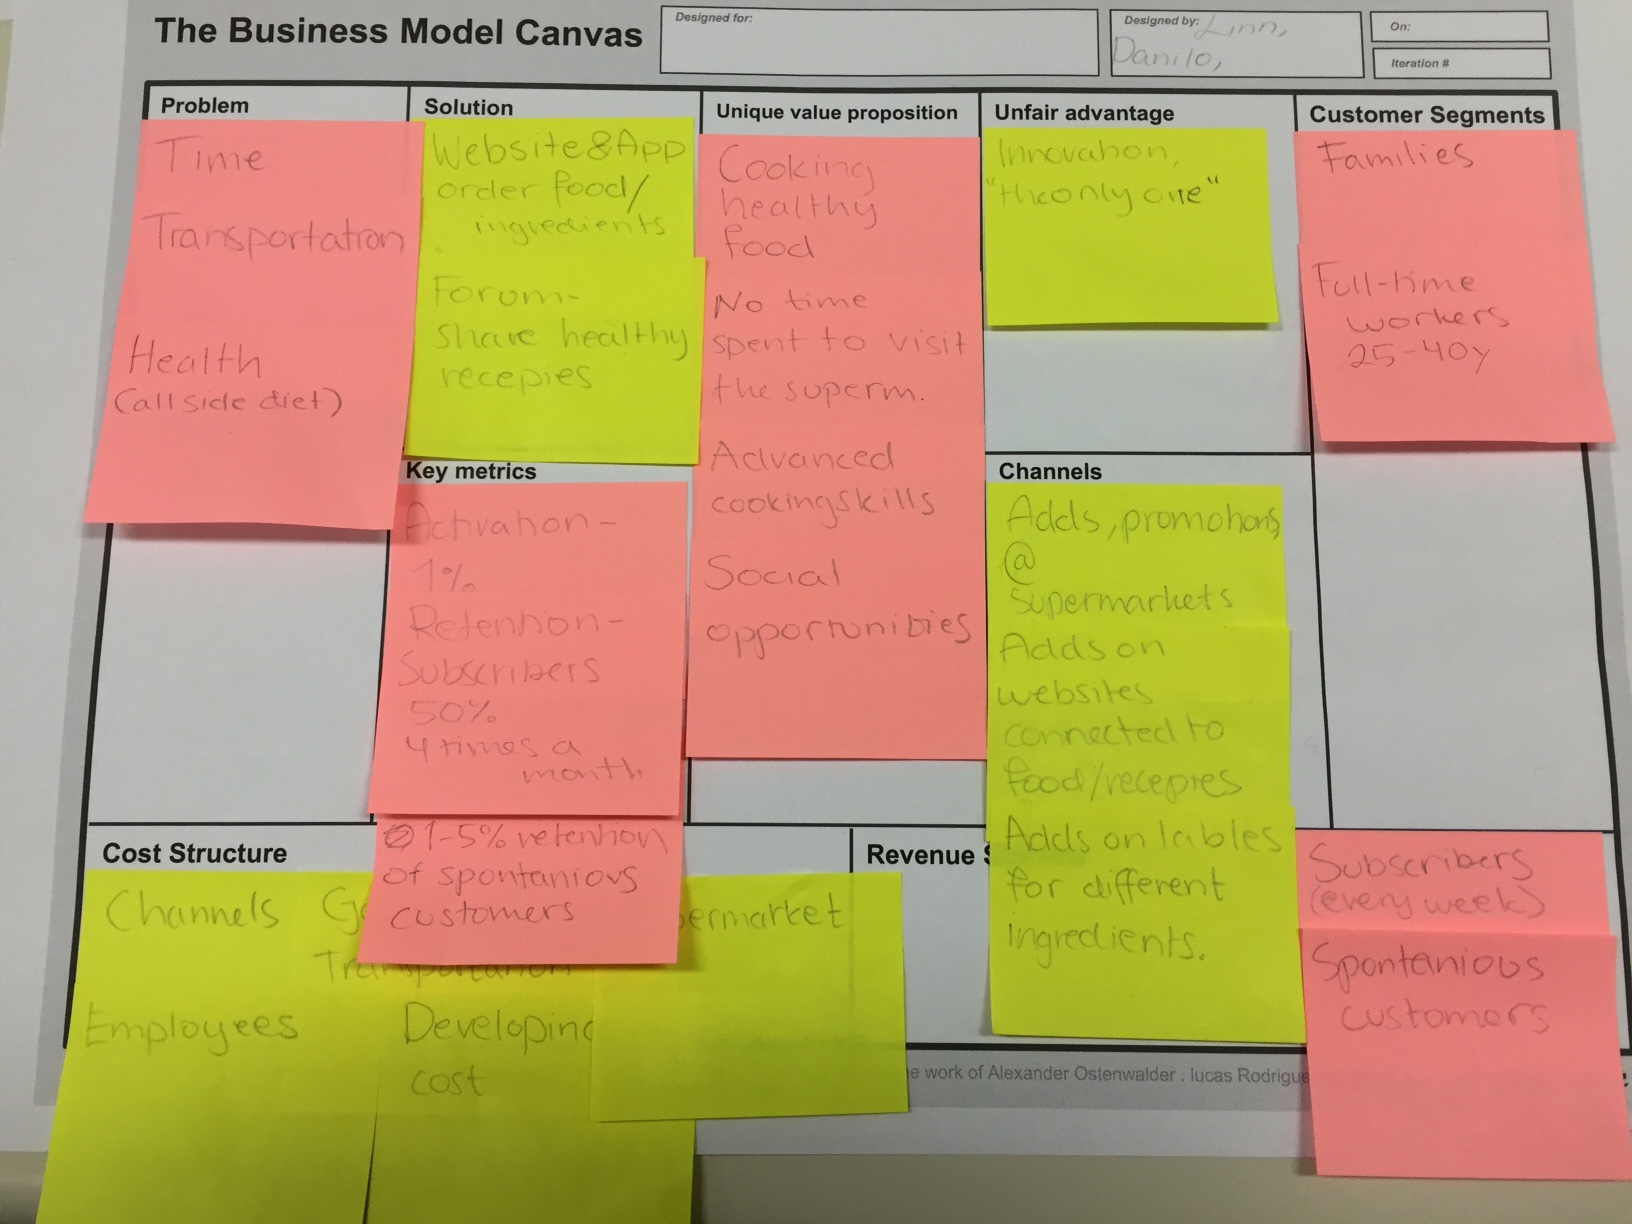 The Business Model Canvas
Designed for:
Designed by: Linn,
Danilo,
On:
Iteration #
Problem
Time
Transportation
Health
(all side diet)
Solution
Website&App
order food/
ingredients
Forum-
share healthy
recepies
Key metrics
Activation-
1%
Retention-
Subscribers
50%
4 times a
month
1-5% retention
of spontanious
customers
Unique value proposition
Cooking
healthy
food
No time
spent to visit
the superm.
Advanced
cookingskills
Social
opportunities
Unfair advantage
Innovation,
"the only one"
Channels
Adds, promotions
@
supermarkets
Adds on
websites
connected to
food/recepies
Adds on lables
for different
ingredients.
Customer Segments
Families
Full-time
workers
25-40y
Subscribers
(every week)
Spontanious
customers
Cost Structure
Channels
Transportation
Employees
Developing
cost
ermarket
Revenue S
e work of Alexander Ostenwalder . lucas Rodrigue